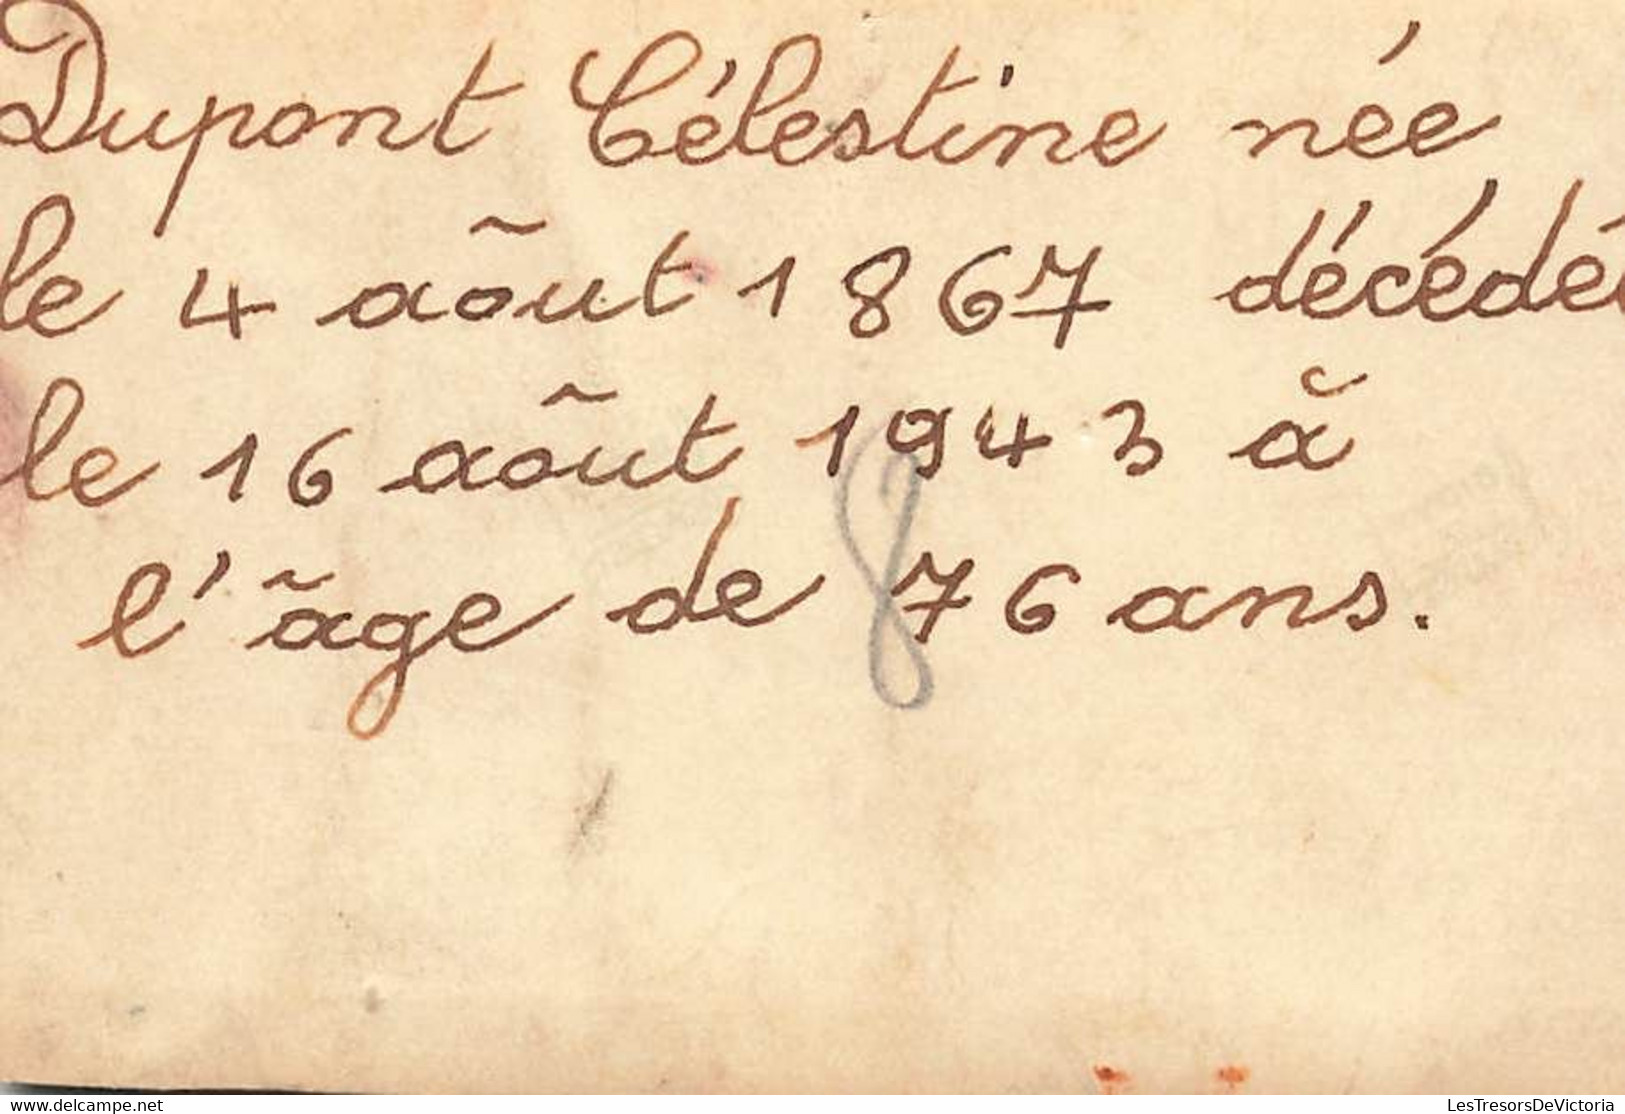 Dupont Célestine née
le 4 aôut 1867 décédée
le 16 aôut 1943 à
l'âge de 76 ans.
8
www.delcampe.net
LesTresorsDeVictoria